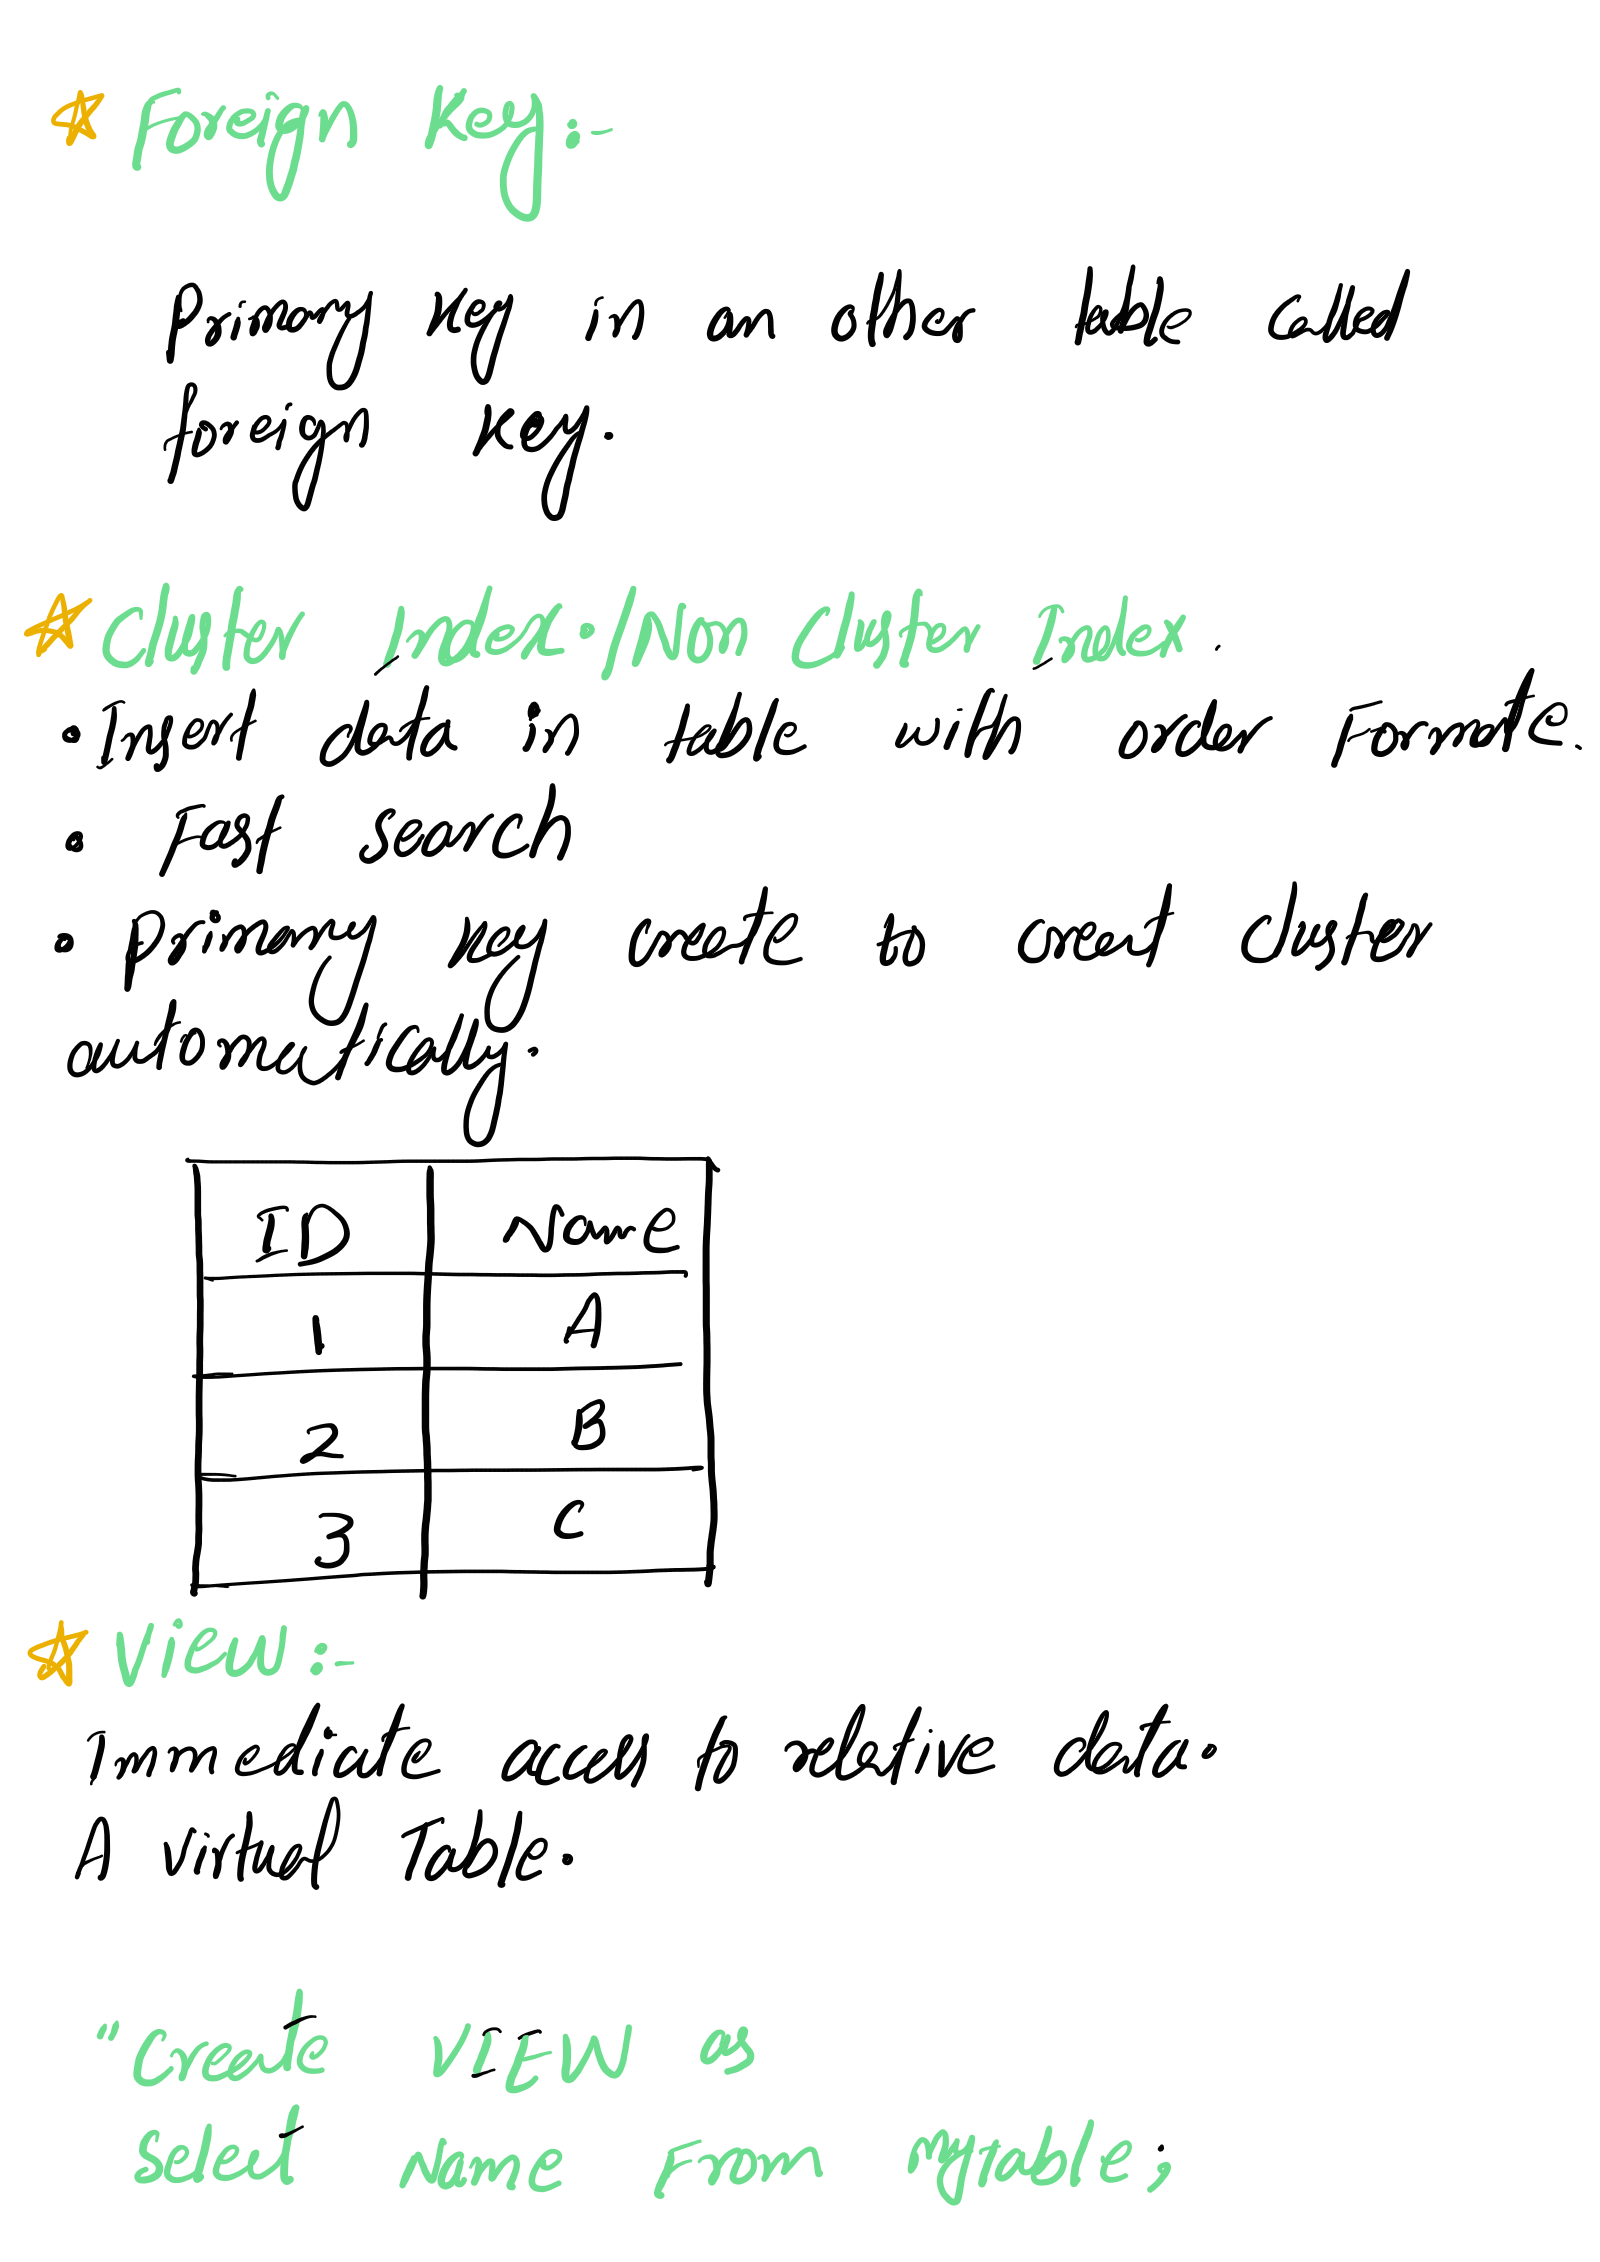 Foreign Key:-
Primary Key in an other table called
foreign Key.
Cluster Index./Non Cluster Index.
• Insert data in table with order Formate.
• Fast search
• Primary Key create to creat cluster
automatically.
ID Name
1 A
2 B
3 C
View:-
Immediate access to relative data.
A virtual Table.
"Create VIEW as
Select Name From myTable;